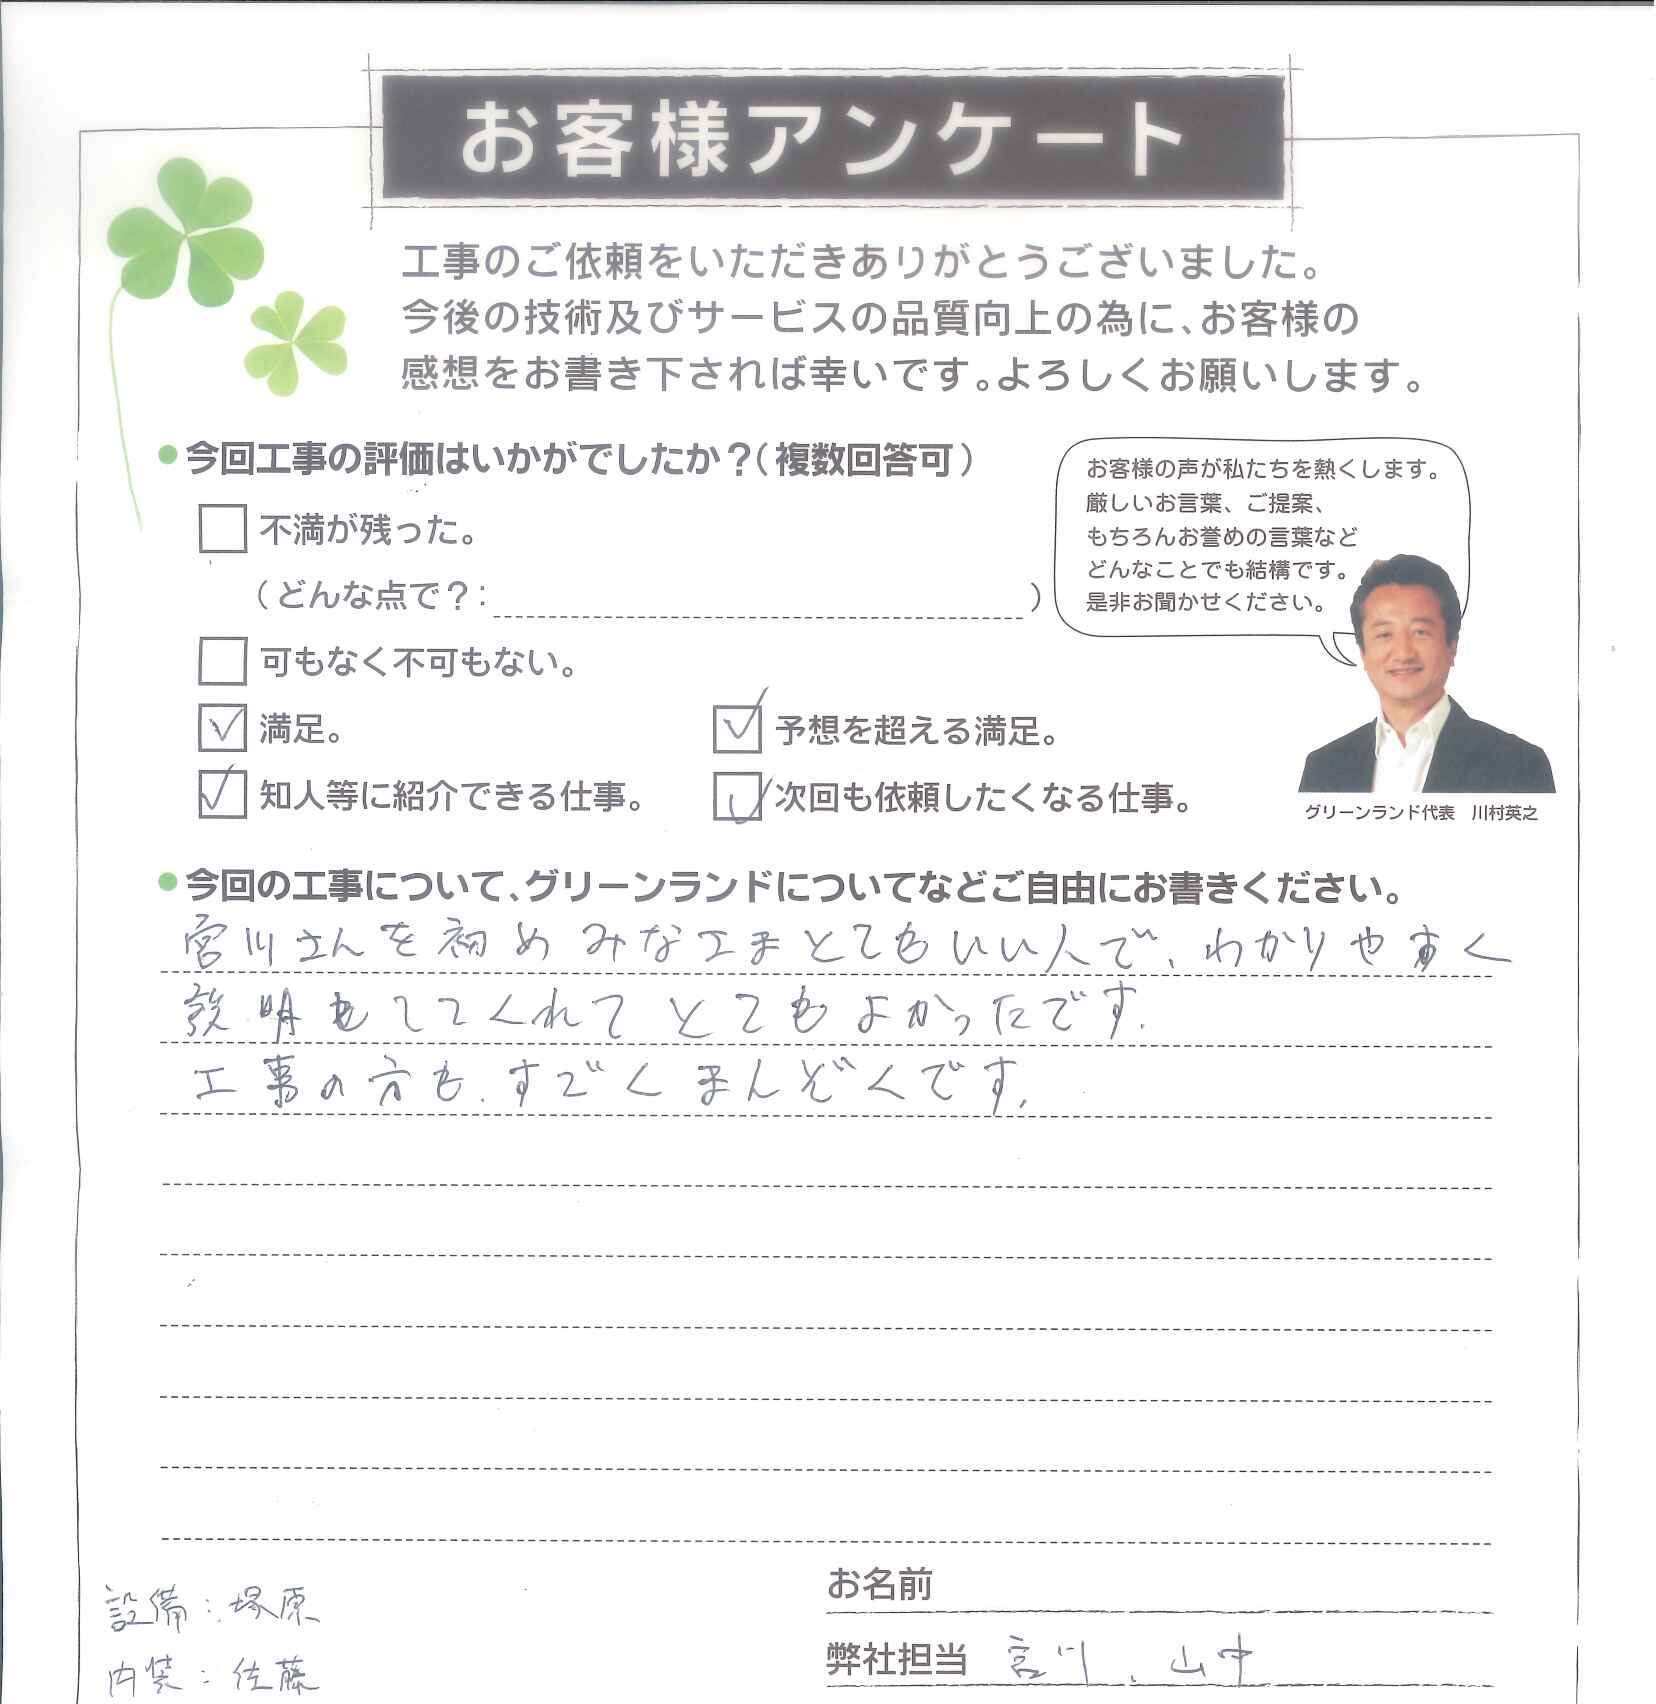 お客様アンケート
工事のご依頼をいただきありがとうございました。
今後の技術及びサービスの品質向上の為に、お客様の
感想をお書き下されば幸いです。よろしくお願いします。
●今回工事の評価はいかがでしたか？（複数回答可）
不満が残った。
（どんな点で？：　　　）
可もなく不可もない。
満足。
予想を超える満足。
知人等に紹介できる仕事。
次回も依頼したくなる仕事。
お客様の声が私たちを熱くします。
厳しいお言葉、ご提案、
もちろんお誉めの言葉など
どんなことでも結構です。
是非お聞かせください。
グリーンランド代表　川村英之
●今回の工事について、グリーンランドについてなどご自由にお書きください。
宮川さんを初めみなさまとてもいい人で、わかりやすく
説明もしてくれてとてもよかったです.
工事の方も.すごくまんぞくです.
お名前
弊社担当　宮川、山中
設備：塚原
内装：佐藤